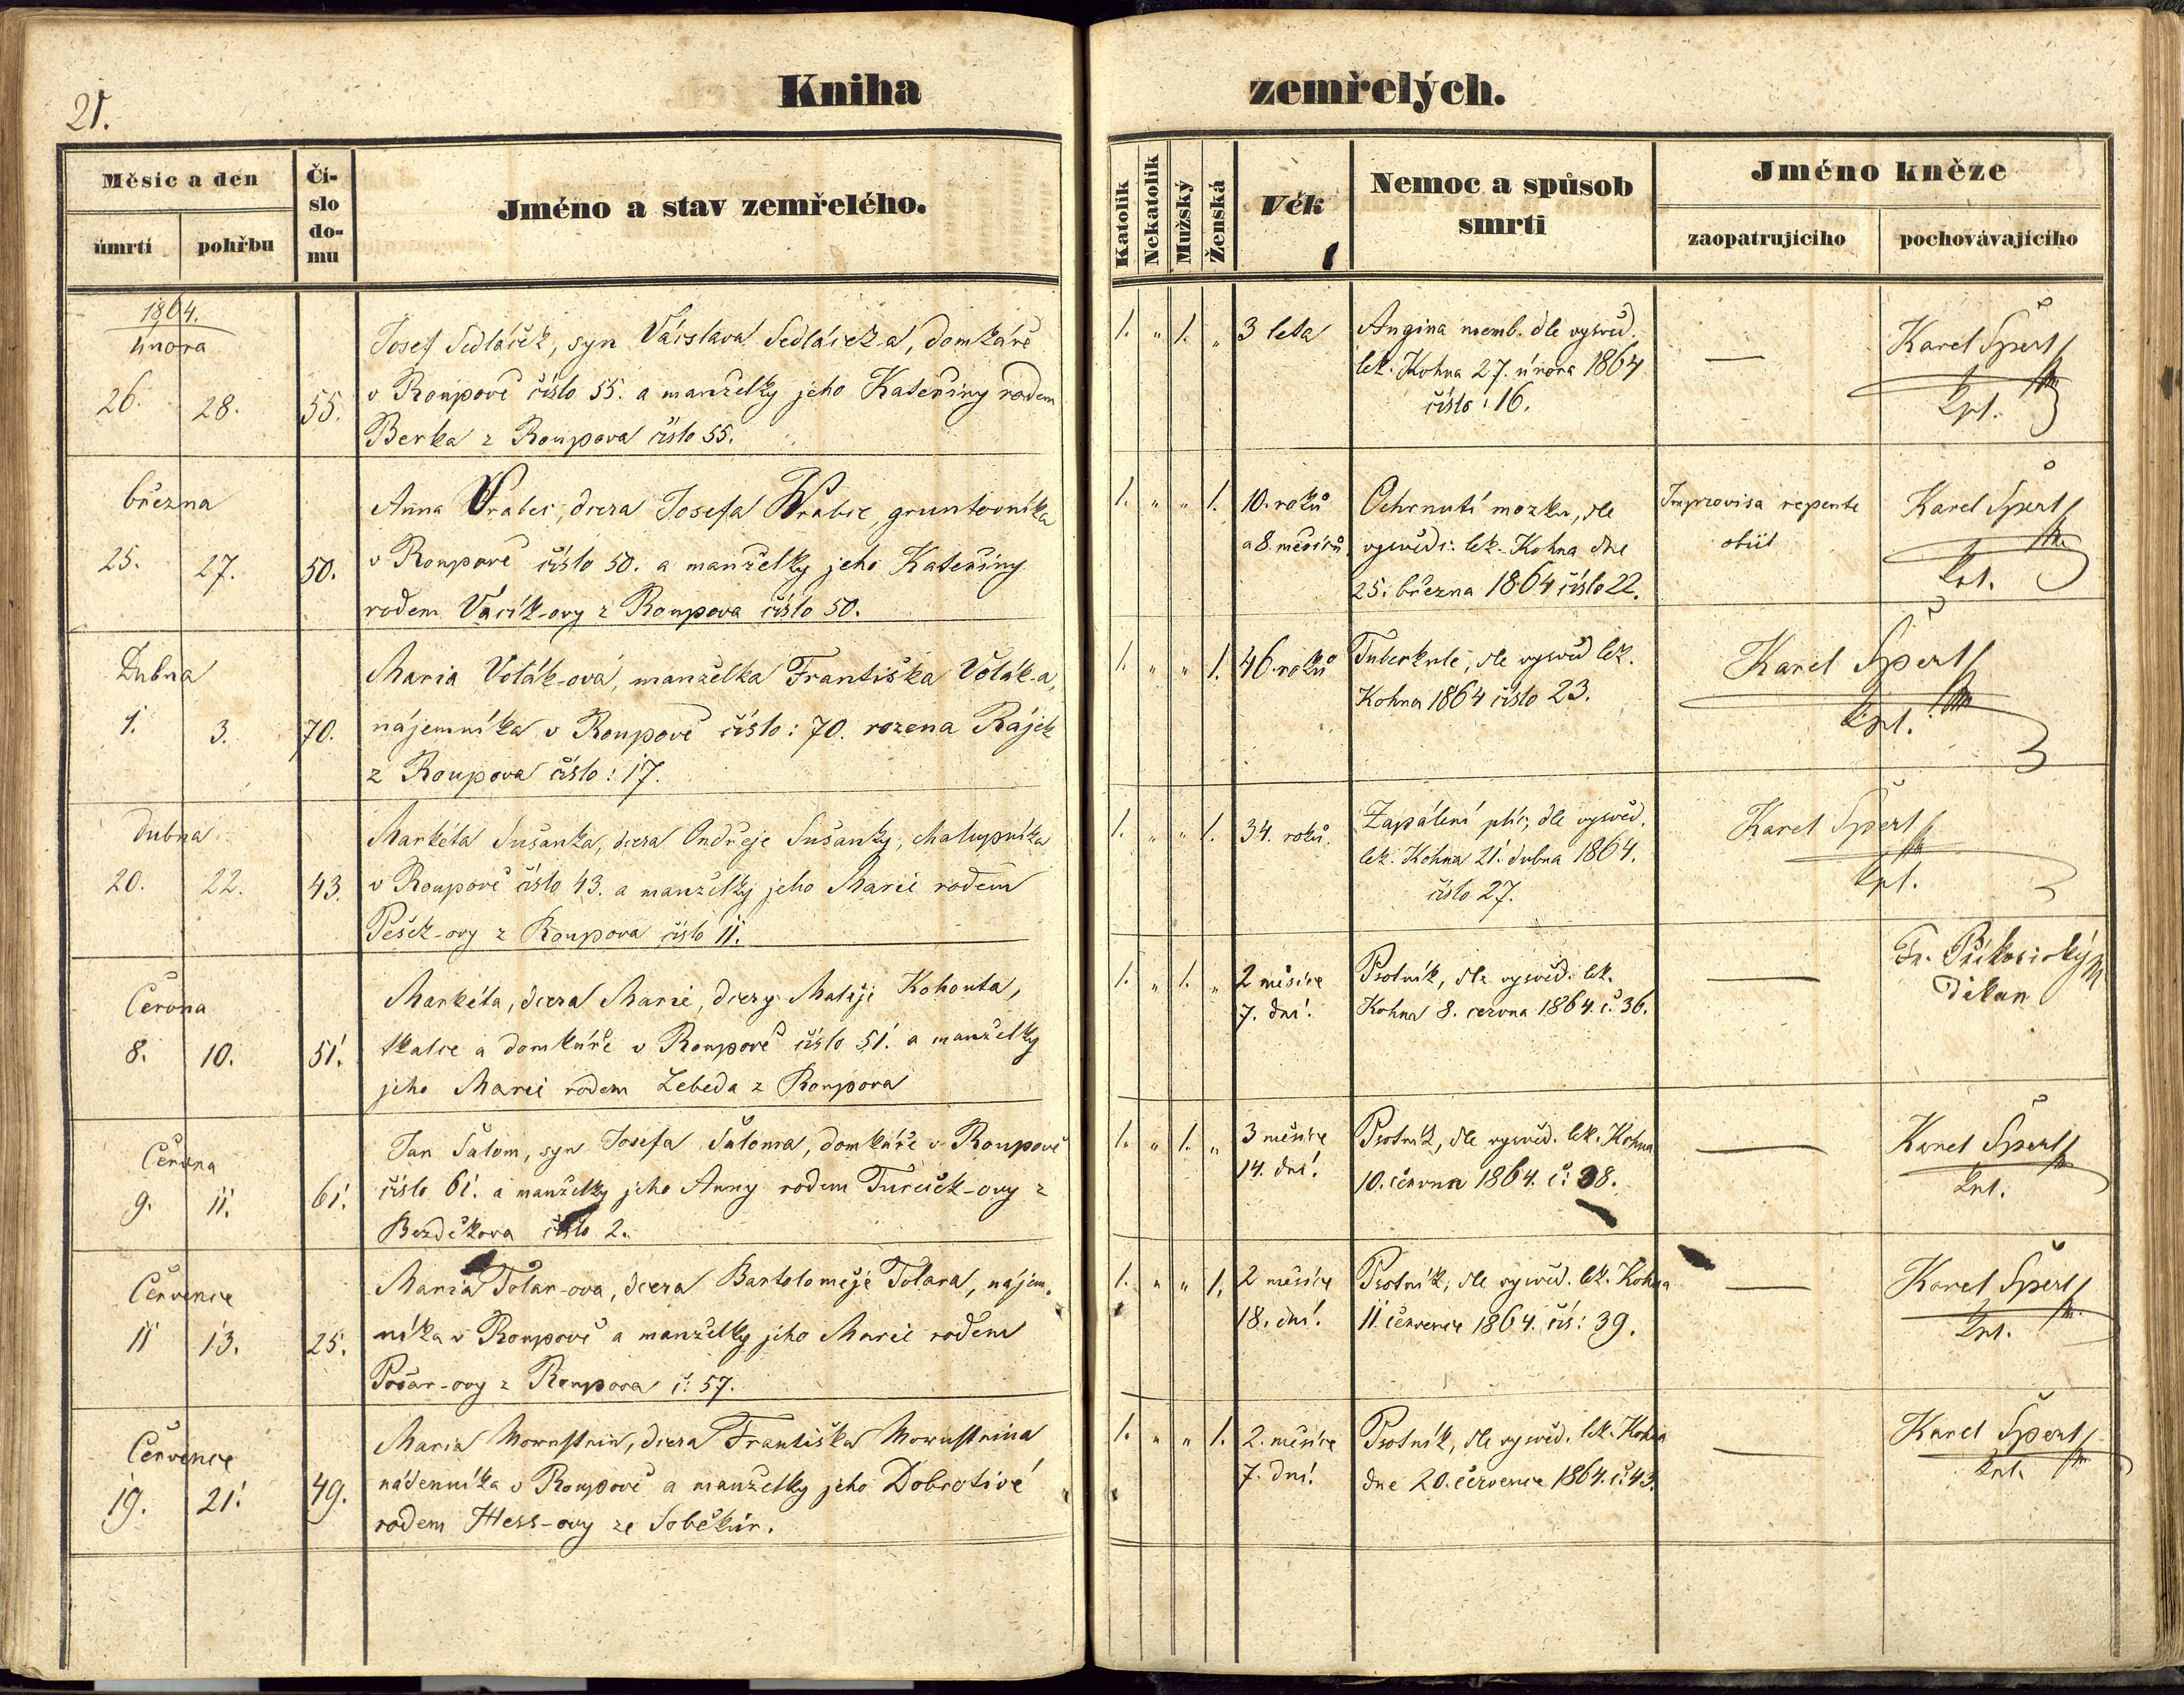 21.
Kniha zemřelých.
Měsíc a den
úmrtí
pohřbu
Číslo domu
Jméno a stav zemřelého.
Katolík
Nekatolík
Mužský
Ženská
Věk
Nemoc a spůsob smrti
Jméno kněze
zaopatrujícího
pochovávajícího
1864.
února
26. 28. 55.
Josef Sedláček, syn Václava Sedláček-a, domkáře
v Roupově číslo 55. a manželky jeho Kateřiny rodem
Berka z Roupova číslo 55.
1. " 1. " 3 leta
Angina memb. dle vysvěd.
lek. Kohna 27. února 1864
číslo: 16.
—
Karel Špert
kpl.
března
25. 27. 50.
Anna Vrabec, dcera Josefa Wrabce, gruntovníka
v Roupově číslo 50. a manželky jeho Kateřiny
rodem Vacík-ovy z Roupova číslo 50.
1. " " 1. 10. roků
a 8 měsíců
Ochrnutí mozku, dle
vysvědč. lek. Kohna dne
25. března 1864 číslo 22.
Improvisa repente
obiit
Karel Špert
kpl.
Dubna
1. 3. 70.
Maria Volák-ová, manželka Františka Volák-a,
nájemníka v Roupově číslo: 70. rozena Rájek
z Roupova číslo: 17.
1. " " 1. 46 roků
Tuberkule, dle vysvěd lek.
Kohna 1864 číslo 23.
Karel Špert
kpl.
dubna
20. 22. 43.
Markéta Sušanka, dcera Ondřeje Sušanky, chalupníka
v Roupově číslo 43. a manželky jeho Marie rodem
Pešek-ovy z Roupova číslo 11.
1. " " 1. 34. roků.
Zapálení plíc, dle vysvěd.
lek. Kohna 21. dubna 1864.
číslo 27.
Karel Špert
kpl.
Června
8. 10. 51.
Markéta, dcera Marie, dcery Matěje Kohouta,
tkalce a domkáře v Roupově číslo 51. a manželky
jeho Marie rodem Lebeda z Roupova
1. " 1. " 2 měsíce
7. dní.
Psotník, dle vysvěd. lek.
Kohna 8. června 1864. č. 36.
—
Děkan
Června
9. 11. 61.
Jan Šalom, syn Josefa Šaloma, domkáře v Roupově
číslo 61. a manželky jeho Anny rodem Tureček-ovy z
Bezděkova číslo 2.
1. " 1. " 3 měsíce
14. dní.
Psotník, dle vysvěd. lek. Kohna
10. června 1864. č: 38.
—
Karel Špert
kpl.
Července
11 13. 25.
Maria Tolar-ova, dcera Bartoloměje Tolara, nájem-
níka v Roupově a manželky jeho Marie rodem
z Roupova č: 57.
1. " " 1. 2 měsíce
18. dní.
Psotník, dle vysvěd. lek. Kohna
11. července 1864. čís: 39.
—
Karel Špert
kpl.
Července
19. 21. 49.
Maria dcera Františka
nádenníka v Roupově a manželky jeho Dobrotivé
rodem Hess-ovy ze Soběkur.
1. " " 1. 2. měsíce
7. dní.
Psotník, dle vysvěd. lek. Kohna
dne 20. července 1864. č. 43.
—
Karel Špert
kpl.